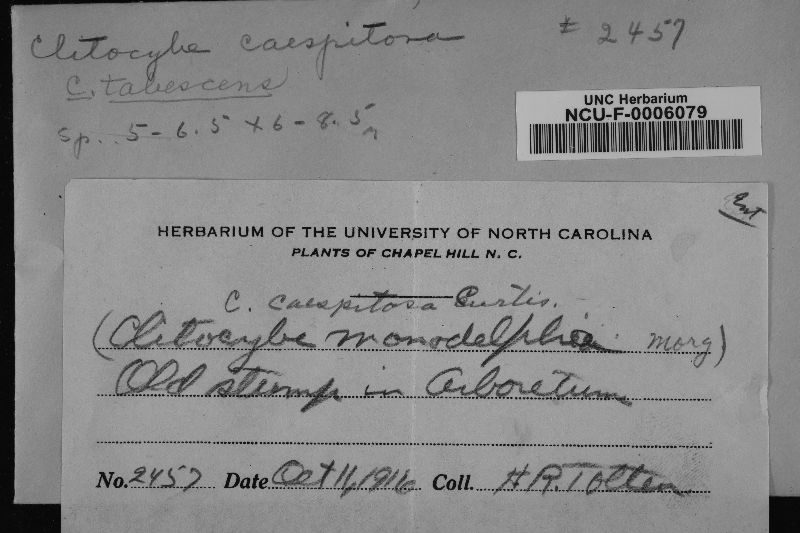 Clitocybe caespitosa # 2457
C. tabescens
Sp. .5-6.5 x 6-8.5
UNC Herbarium
NCU-F-0006079
Ent
HERBARIUM OF THE UNIVERSITY OF NORTH CAROLINA
PLANTS OF CHAPEL HILL N. C.
C. caespitosa Curtis.
(Clitocybe monodelphia Morg)
Old stump in Arboretum
No. 2457 Date Oct 11, 1916 Coll. H R. Totten